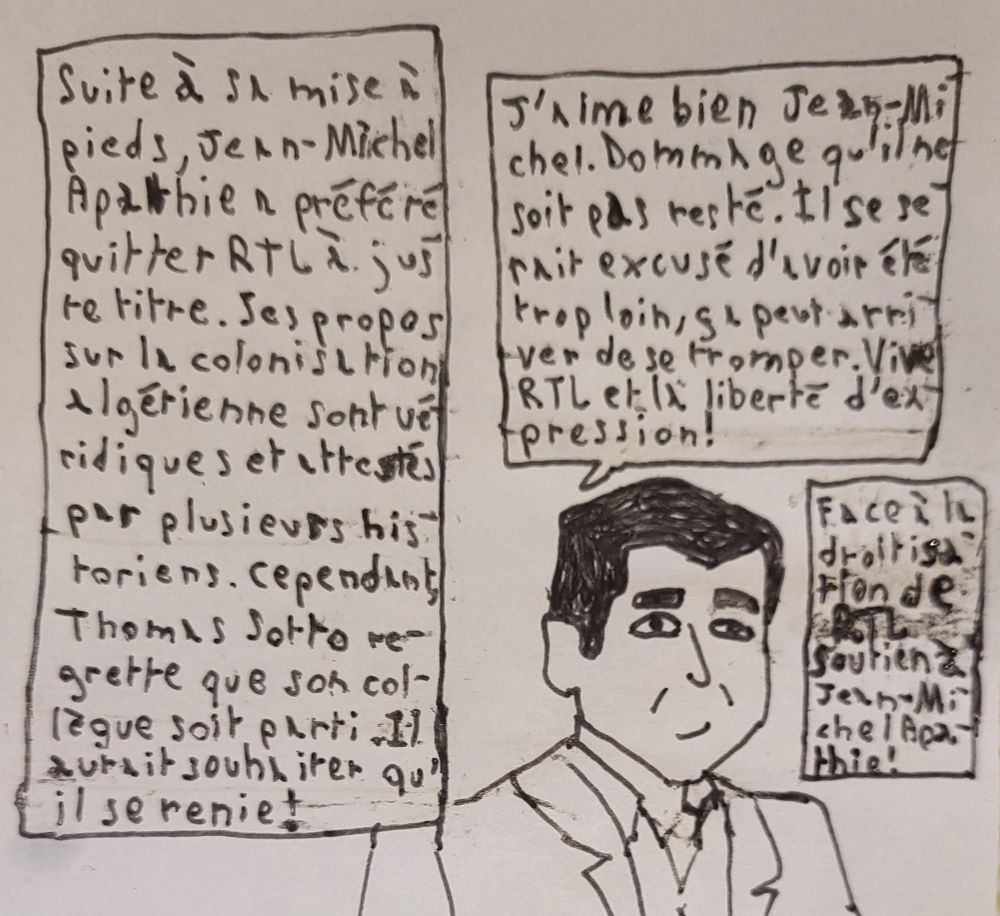 Suite à sa mise à
pieds, Jean-Michel
Apathie a préféré
quitter RTL à jus
te titre. Ses propos
sur la colonisation
algérienne sont vé
ridiques et attestés
par plusieurs his-
toriens. Cependant,
Thomas Sotto re-
grette que son col-
lègue soit parti. Il
aurait souhaiter qu'
il se renie !
J'aime bien Jean-Mi
chel. Dommage qu'il ne
soit pas resté. Il se se
rait excusé d'avoir été
trop loin, ça peut arri
ver de se tromper. Vive
RTL et la liberté d'ex-
pression !
Face à la
droitisa-
tion de
RTL
soutien à
Jean-Mi
chel Apa-
thie !